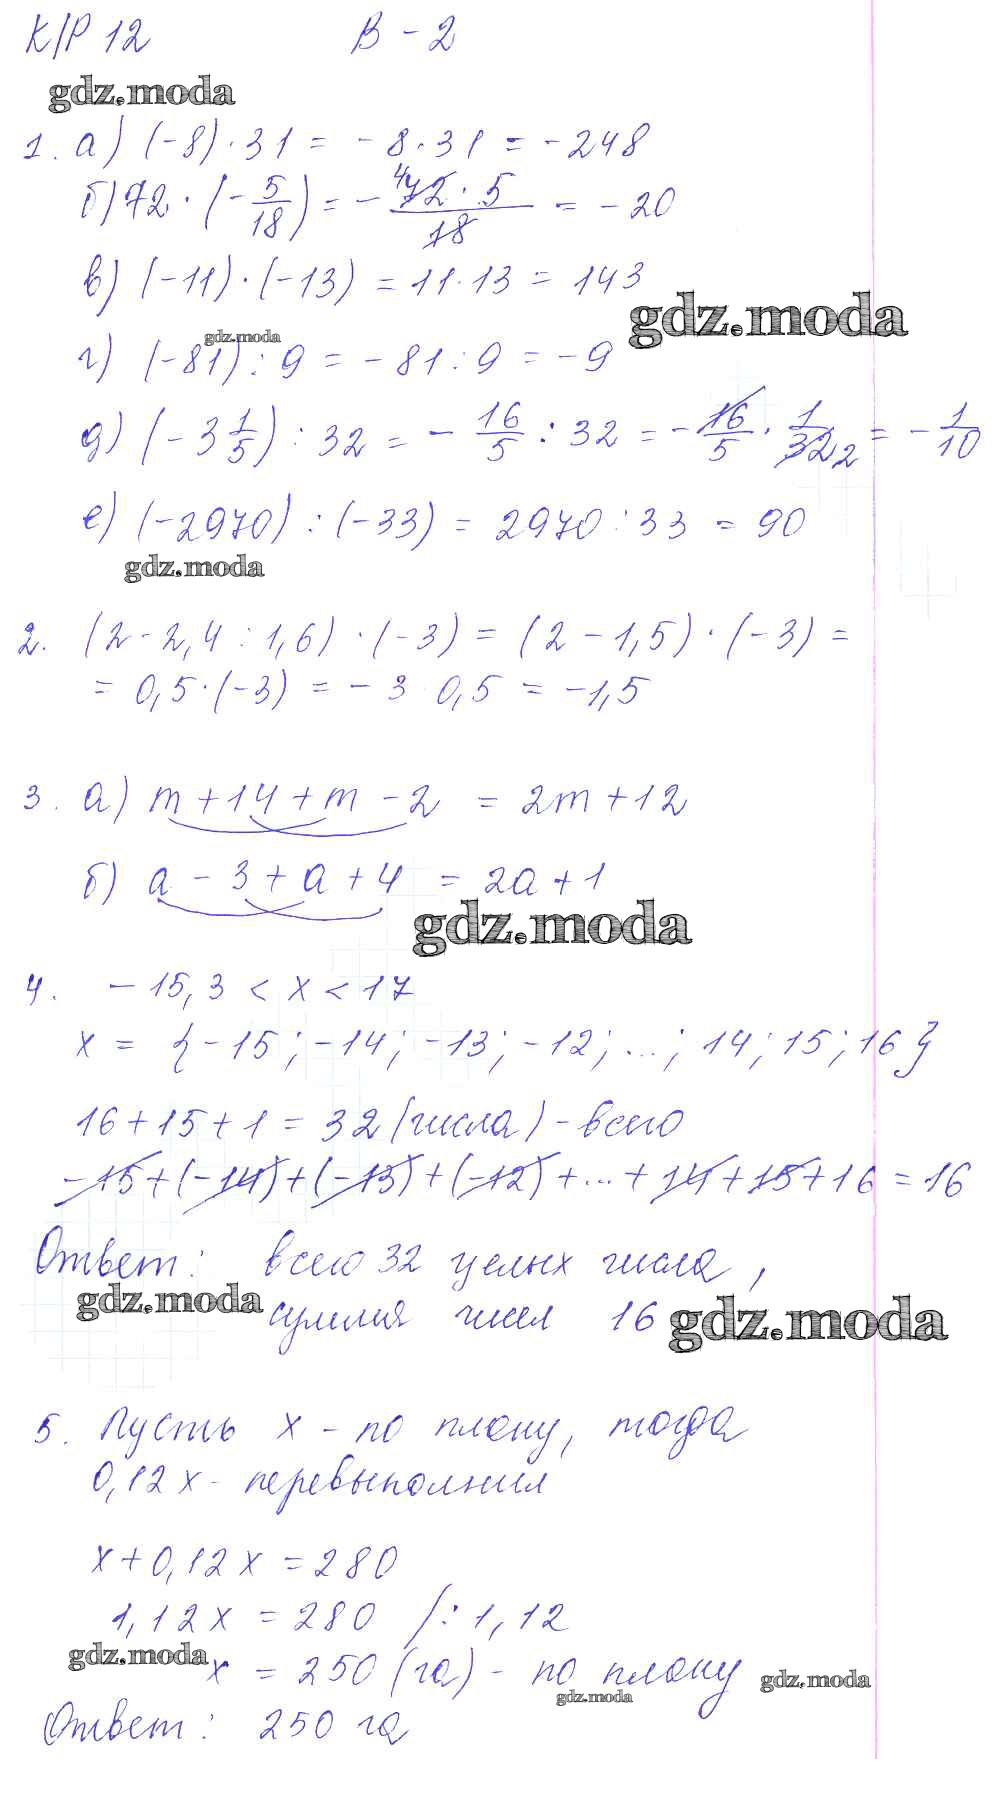 К/Р 12 В - 2
gdz.moda
1. а) (-8) · 31 = - 8 · 31 = - 248
б) 72 · (- 5/18) = - 4 72 · 5 / 18 = - 20
в) (-11) · (-13) = 11 · 13 = 143
gdz.moda
gdz.moda
г) (-81) : 9 = - 81 : 9 = - 9
д) (- 3 1/5) : 32 = - 16/5 : 32 = - 16/5 · 1/32 2 = - 1/10
е) (-2970) : (-33) = 2970 : 33 = 90
gdz.moda
2. (2 - 2,4 : 1,6) · (-3) = (2 - 1,5) · (-3) =
= 0,5 · (-3) = - 3 0,5 = -1,5
3. а) m + 14 + m - 2 = 2m + 12
б) a - 3 + a + 4 = 2a + 1
gdz.moda
4. - 15,3 < x < 17
x = {-15; -14; -13; -12; ...; 14; 15; 16}
16 + 15 + 1 = 32 (числа) - всего
-15 + (-14) + (-13) + (-12) + ... + 14 + 15 + 16 = 16
Ответ: всего 32 целых числа,
gdz.moda
сумма чисел 16
gdz.moda
5. Пусть x - по плану, тогда
0,12x - перевыполнил
x + 0,12x = 280
1,12x = 280 /: 1,12
gdz.moda
x = 250 (га) - по плану
gdz.moda
gdz.moda
Ответ: 250 га